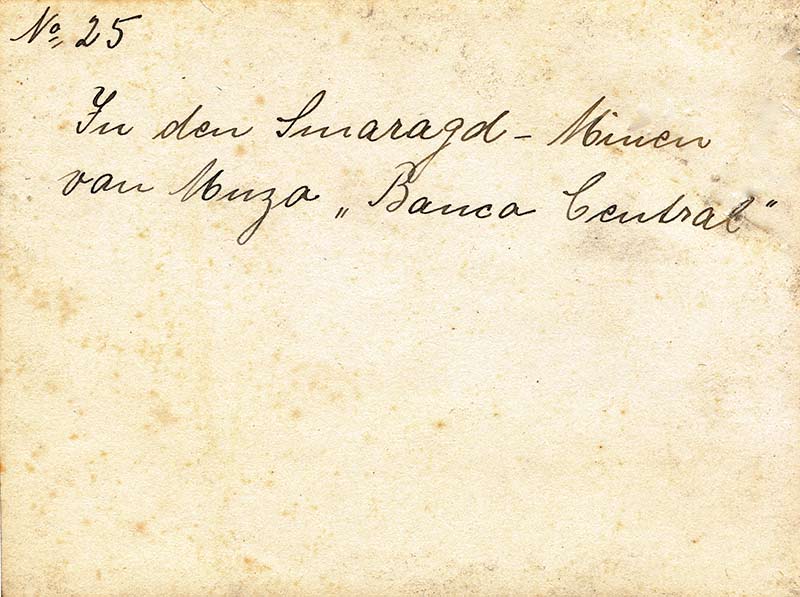 No. 25
In den Smaragd-Minen
von Muzo „Banco Central"